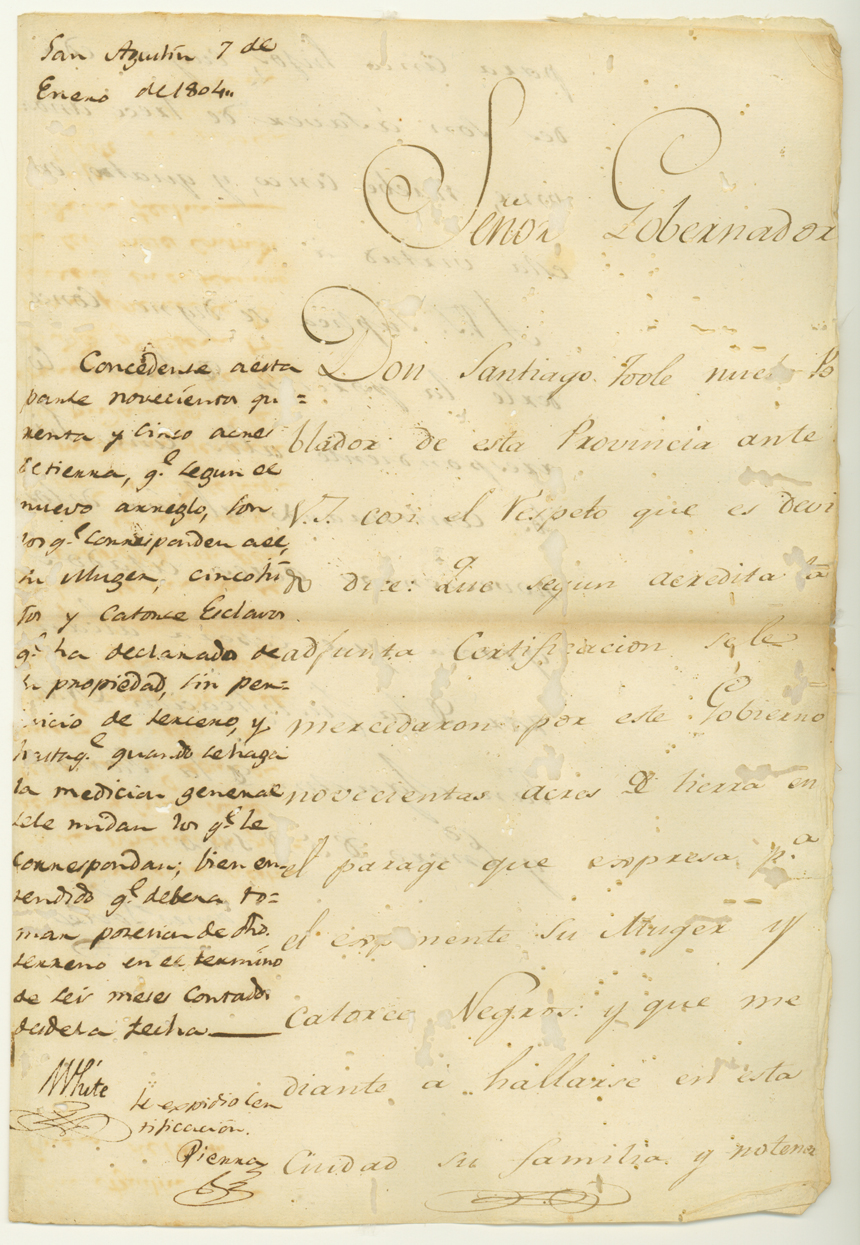 San Agustin 7 de
Enero de 1804,,
Señor Gobernador
Concedense aesta
parte novecienta qu=
renta y cinco acres
de tierra, q.e segun el
nuevo arreglo, son
los q.e corresponden a el,
su Muger, cinco hi
jos y catorce Esclavos
q.e ha declarado de
su propiedad, sin per=
juicio de tercero, y
hasta q.e quando se haga
la medicion general
sele midan los q.e le
correspondan; bien en=
tendido q.e debera to=
mar posesion de dho.
terreno en el termino
de seis meses contados
desde la fecha
White
Se expidio cer
tificacion.
Pierra
Don Santiago Toole nuebo Po
blador de esta Provincia ante
V.S. con el respeto que es devi
do dice: Que segun acredita la
adjunta Certificacion se le
mercedaron por este Gobierno
novecientas acres de tierra en
el parage que expresa p.a
el exponente su Muger y
catorce Negros: y que me
diante á hallarse en esta
Ciudad su familia y notener